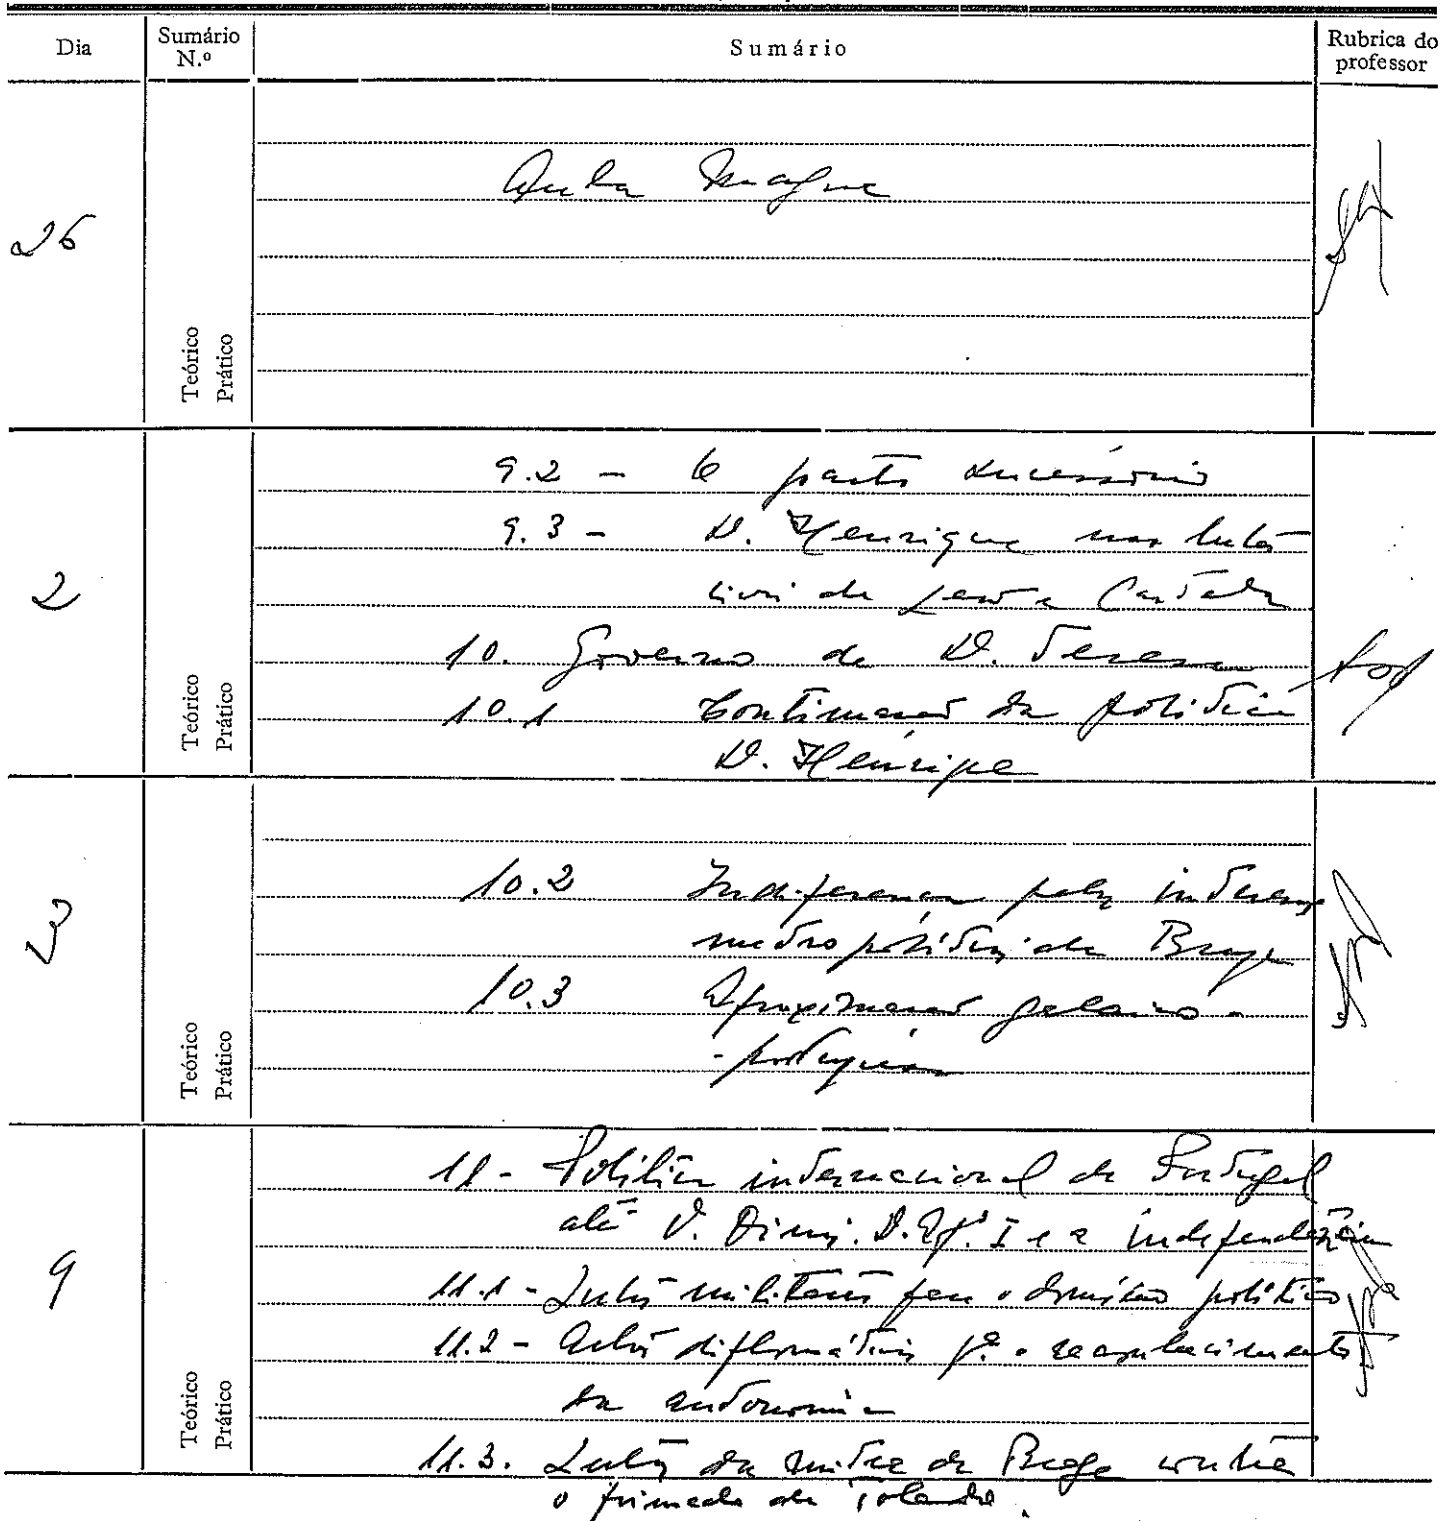 Dia
Sumário N.º
Sumário
Rubrica do professor
26
Aula Magna
Teórico
Prático
2
9.2 - O pacto sucessório
9.3 - D. Henrique nas lutas
civis de Leão e Castela
10. Governo de D. Teresa
10.1 Continuação da política
D. Henrique
Teórico
Prático
3
10.2 Indiferença pelos interesses
metropolíticos de Braga
10.3 Aproximação galaico-
-portuguesa
Teórico
Prático
9
11 - Política internacional de Portugal
até D. Dinis. D. Af.º I e a independência
11.1 - Lutas militares para o domínio político
11.2 - Actos diplomáticos p.ª o reconhecimento
da autonomia
11.3. Lutas da mitra de Braga contra
o primado de Toledo.
Teórico
Prático